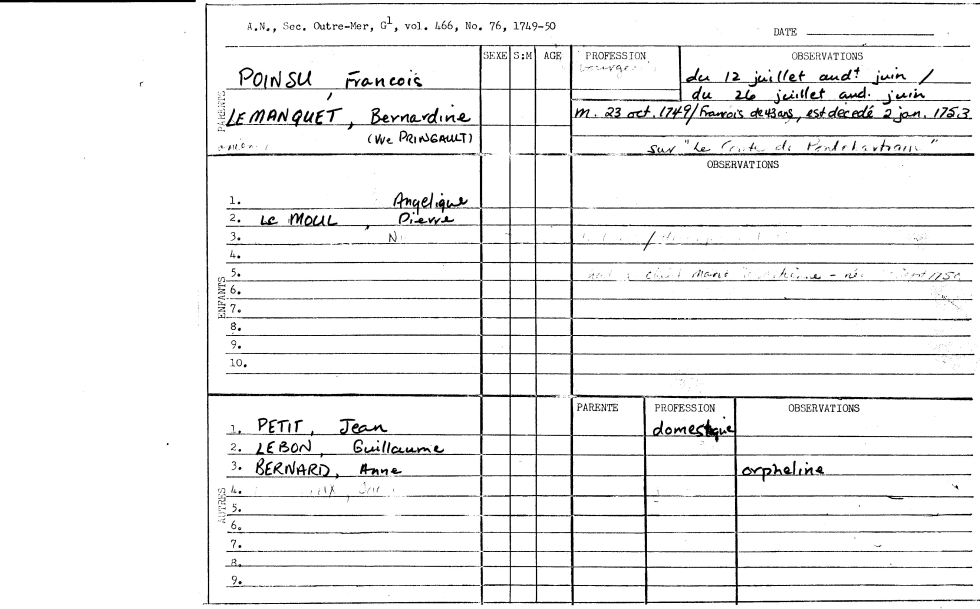 A.N., Sec. Outre-Mer, G1, vol. 466, No. 76, 1749-50
DATE
SEXE S:M AGE PROFESSION OBSERVATIONS
PARENTS
POINSU, Francois
du 12 juillet audt juin /
du 26 juillet aud. juin
LEMANQUET, Bernardine
m. 23 oct. 1749/Francois de 43 ans, est décedé 2 jan. 1753
(We PRINGAULT)
sur "Le Comte de Pontchartrain"
OBSERVATIONS
ENFANTS
1. Angelique
2. LE MOUL, Pierre
3.
4.
5.
6.
7.
8.
9.
10.
PARENTE PROFESSION OBSERVATIONS
AUTRES
1. PETIT, Jean domestique
2. LEBON, Guillaume
3. BERNARD, Anne orpheline
4.
5.
6.
7.
8.
9.